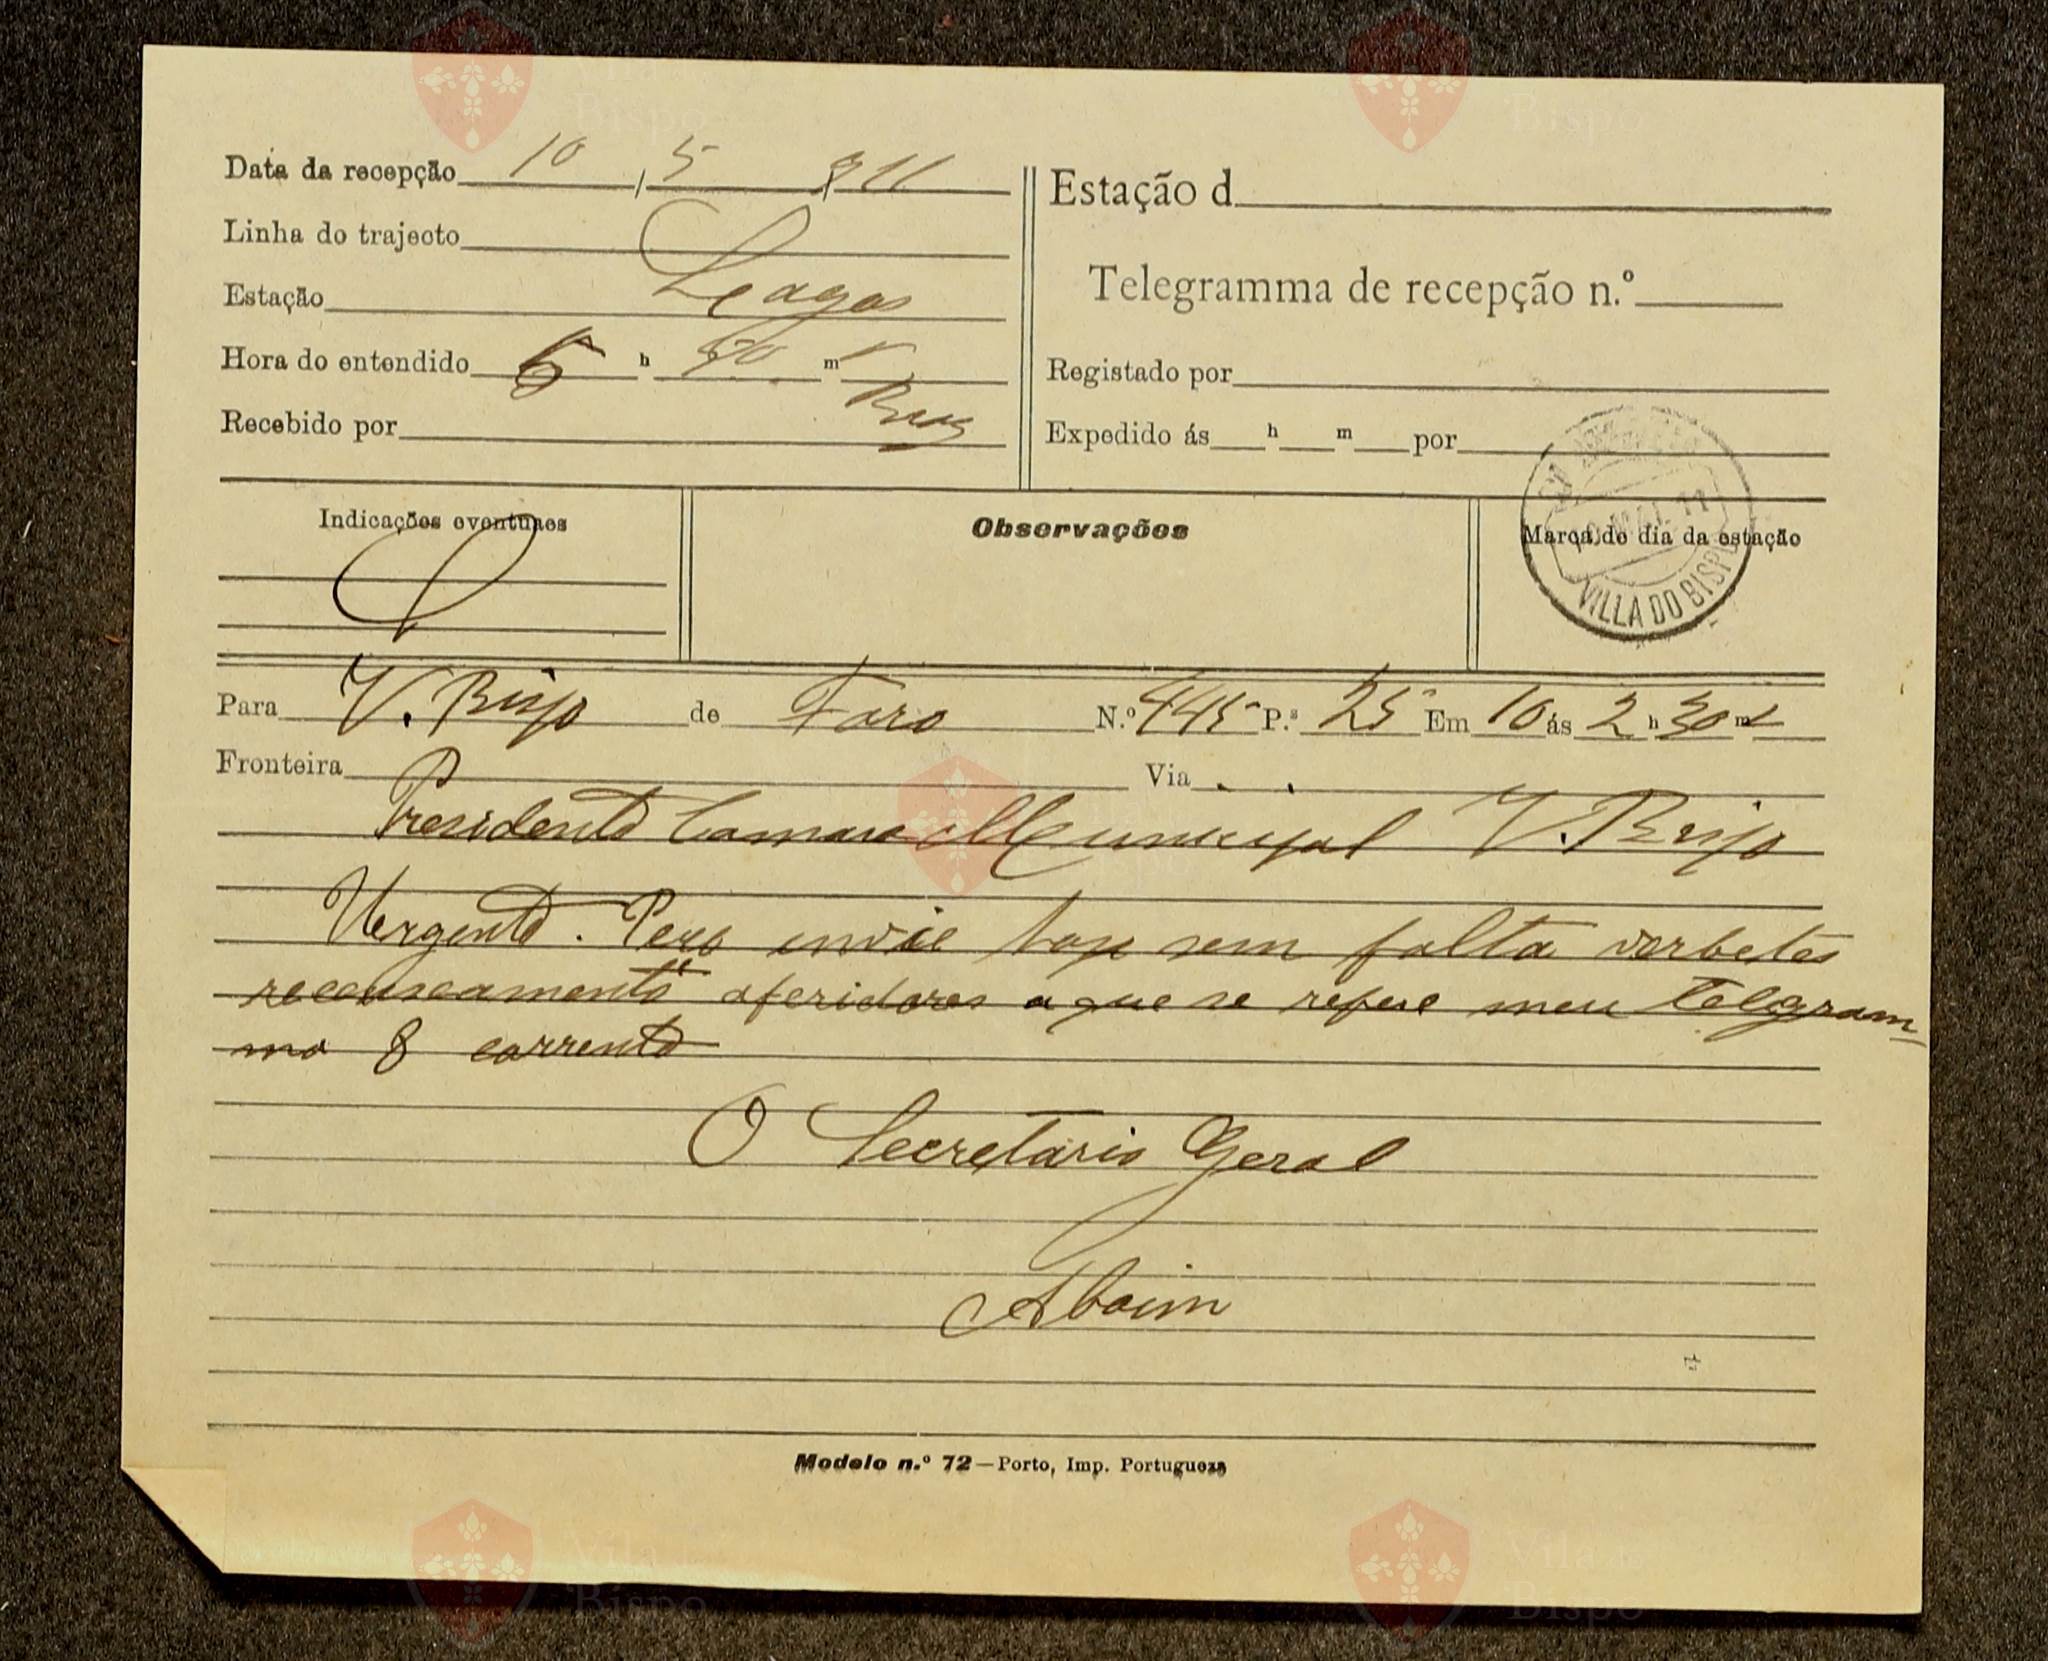 Data da recepção 10 / 5 / 911
Linha do trajecto
Estação Lagos
Hora do entendido 6 h 50 m
Recebido por
Estação d
Telegramma de recepção n.º
Registado por
Expedido ás h m por
Indicações eventuaes
Observações
Marca do dia da estação
10 MAI. 11
VILLA DO BISPO
Para V. Bispo de Faro N.º 445 P.s 25 Em 10 ás 2 h 30 m
Fronteira Via
Presidente Camara Municipal V. Bispo
Urgente. Peço envie hoje sem falta verbetes
recenseamento aferidores a que se refere meu telegram-
ma 8 corrente
O Secretario Geral
Aboim
Modelo n.º 72 — Porto, Imp. Portugueza
Vila do
Bispo